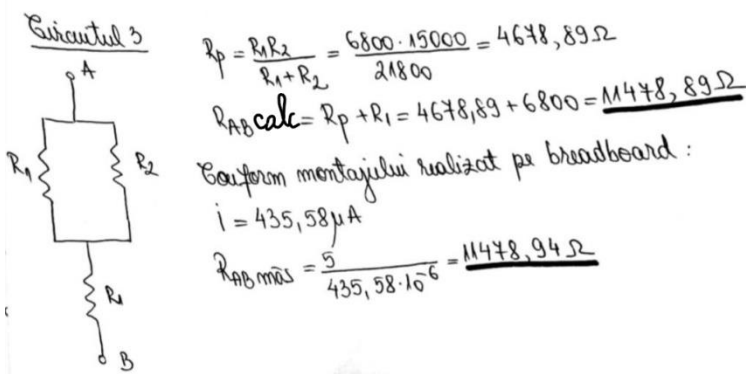 Circuitul 3
A
R1
R2
R1
B
Rp = R1R2 / R1+R2 = 6800·15000 / 21800 = 4678,89Ω
RAB calc = Rp + R1 = 4678,89 + 6800 = 11478,89Ω
Conform montajului realizat pe breadboard :
i = 435,58μA
RAB mas = 5 / 435,58·10^-6 = 11478,94 Ω